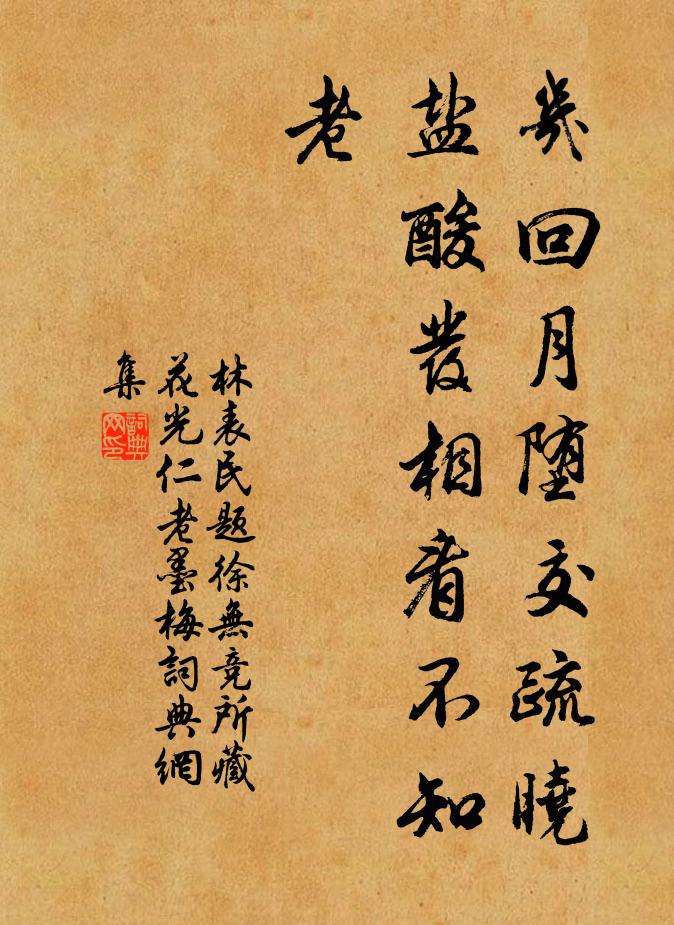 幾回月堕交疏曉
盐酸發相看不知
老
林表民题徐無竞所藏
花光仁老墨梅詞典網
集
詞典
网印